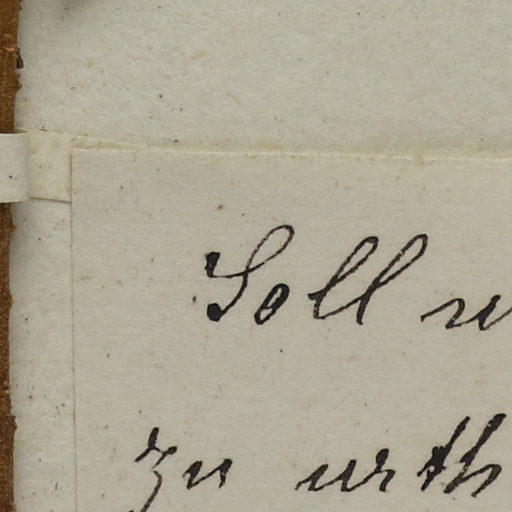 Soll
zu urth